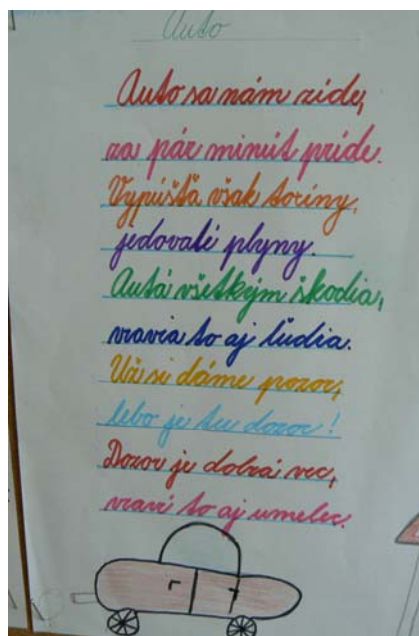 Auto
Auto sa nám zíde,
za pár minút príde.
Vypúšťa však toxíny,
jedovaté plyny.
Autá všetkým škodia,
vravia to aj ľudia.
Už si dáme pozor,
lebo je tu dozor!
Dozor je dobrá vec,
vraví to aj umelec.